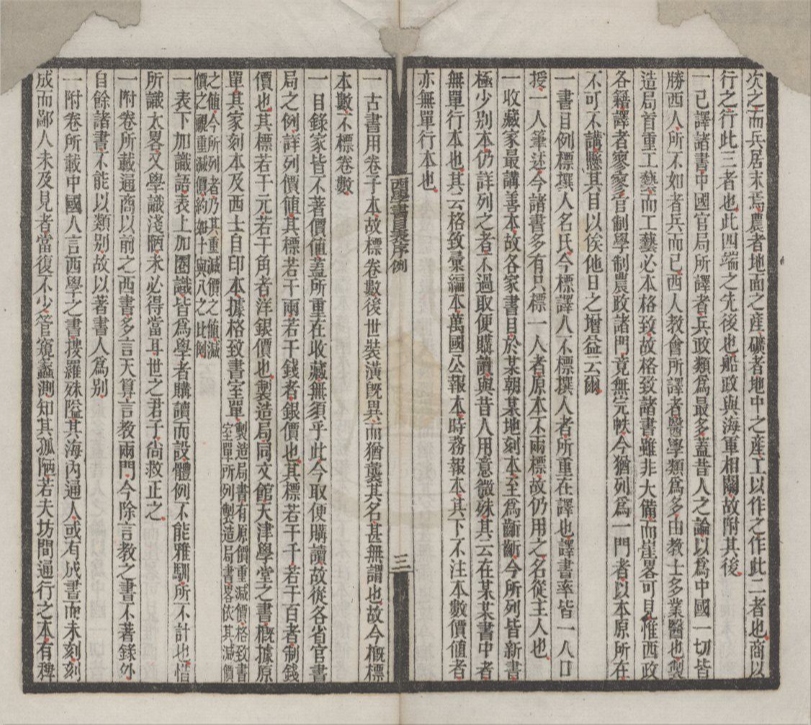 次之而兵居末焉農者地面之產礦者地中之產工以作之作此二者也商以
行之行此三者也此四端之先後也船政與海軍相關故附其後
一已譯諸書中國官局所譯者兵政類為最多蓋昔人之論以為中國一切皆
勝西人所不如者兵而已西人教會所譯者醫學類為多由教士多業醫也製
造局首重工藝而工藝必本格致故格致諸書雖非大備而崖畧可見惟西政
各籍譯者寥寥官制學制農政諸門竟無完帙今猶列為一門者以本原所在
不可不講懸其目以俟他日之增益云爾
一書目例標撰人名氏今標譯人不標撰人者所重在譯也譯書率皆一人口
授一人筆述今諸書多有只標一人者原本不兩標故仍用之名從主人也
一收藏家最講善本故各家書目於某朝某地刻本至為齗齗今所列皆新書
極少別本仍詳列之者不過取便購讀與昔人用意微殊其云在某某書中者
無單行本也其云格致彙編本萬國公報本時務報本其下不注本數價值者
亦無單行本也
西學書目表序例
三
一古書用卷子本故標卷數後世裝潢既異而猶襲其名甚無謂也故今概標
本數不標卷數
一目錄家皆不著價值蓋所重在收藏無須乎此今取便購讀故從各省官書
局之例詳列價值其標若干兩若干錢者銀價也其標若干千若干百者制錢
價也其標若干元若干角者洋銀價也製造局同文館天津學堂之書概據原
單其家刻本及西士自印本據格致書室單製造局書有原價重減價格致書室單所列製造局書畧依其減價
之值今所列者乃其減價之值減價之視重減價約如十與八之比例
一表下加識語表上加圈識皆為學者購讀而設體例不能雅馴所不計也惜
所識太畧又學識淺陋未必得當耳世之君子尚救正之
一附卷所載通商以前之西書多言天算言教兩門今除言教之書不著錄外
自餘諸書不能以類別故以著書人為別
一附卷所載中國人言西學之書搜羅殊隘其海內通人或有成書而未刻刻
成而鄙人未及見者當復不少管窺蠡測知其孤陋若夫坊間通行之本有裨